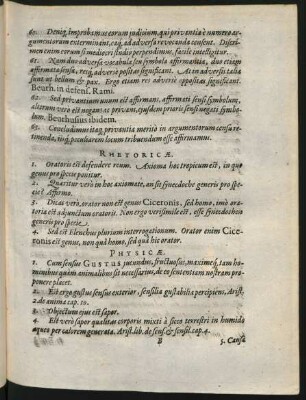 60. Deniq; improbamus eorum judicium, qui privantia è numero ar-
gumentorum exterminant, eaq; ad adversa revocanda censent. Discri-
men enim eorum si mediocri studio perpendimus, facilè
61. Nam duo adversa vocabula, seu symbola affirmantia, duo etiam
affirmata sensa, res, adversè positas significant. At in adversis talia
sunt ut bellum & pax. Ergo etiam res adversè oppositas significant.
Beurh. in defens. Rami.
62. Sed privantium unum est affirmans, affirmati sensi symbolum,
alterum verò est negans ac privans, ejusdem prioris sensi negati symbo-
lum. Beurhusius ibidem.
63. Concludimus itaq; privantia meritò in argumentorum censu re-
tinenda, eiq; peculiarem locum tribuendum esse affirmamus.
RHETORICÆ.
1. Oratoris est defendere reum. Axioma hoc tropicum est, in quo
genus pro specie ponitur.
2. Quæritur verò in hoc axiomate, an sit synecdoche generis pro spe-
cie? Affirmo.
3. Dicas verò, orator non est genus Ciceronis, sed homo, imò ora-
toria est adjunctum oratoris. Non ergo verisimile est, esse synecdochen
generis pro specie.
4. Sed est Elenchus plurium interrogationum. Orator enim Cice-
ronis est genus, non quà homo, sed quà hic orator.
PHYSICÆ.
1. Cum sensus GUSTUS jucundus, fructuosus, maximeq; tam ho-
minibus quàm animalibus sit necessarius, de eo sententiam nostram pro-
ponere placet.
2. Est ergo gustus sensus exterior, sensilia gustabilia percipiens, Arist.
2. de anima cap. 10.
3. Objectum ejus est sapor.
4. Est verò sapor qualitas corporis mixti à sicco terrestri in humido
aqueo per calorem generata. Arist. lib. de sens. & sensil. cap. 4.
B
5. Causa